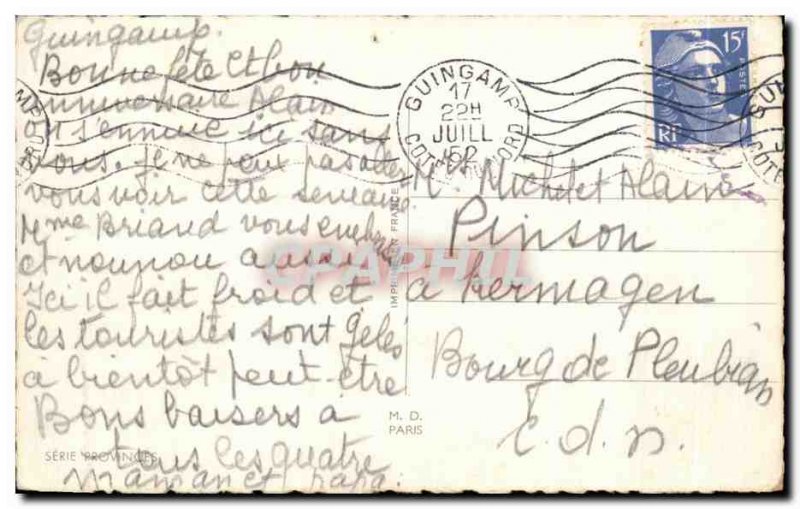 Guingamp.
Bonne fête et bon
anniversaire Alain
on s'ennuie ici sans
vous. Je ne peux pas aller
vous voir cette semaine
Mme Briand vous embrasse
et nounou aussi
Ici il fait froid et
les touristes sont gelés
à bientôt peut-être
Bons baisers à
tous les quatre
maman et papa.
SÉRIE PROVINCES
GUINGAMP
17
22H
JUILL
52
COTES DU NORD
15F
POSTES
RF
IMPRIMÉ EN FRANCE
M. D.
PARIS
M. Michel et Alain
Pinson
à Kermagen
Bourg de Pleubian
C. d. N.
CPAPHIL